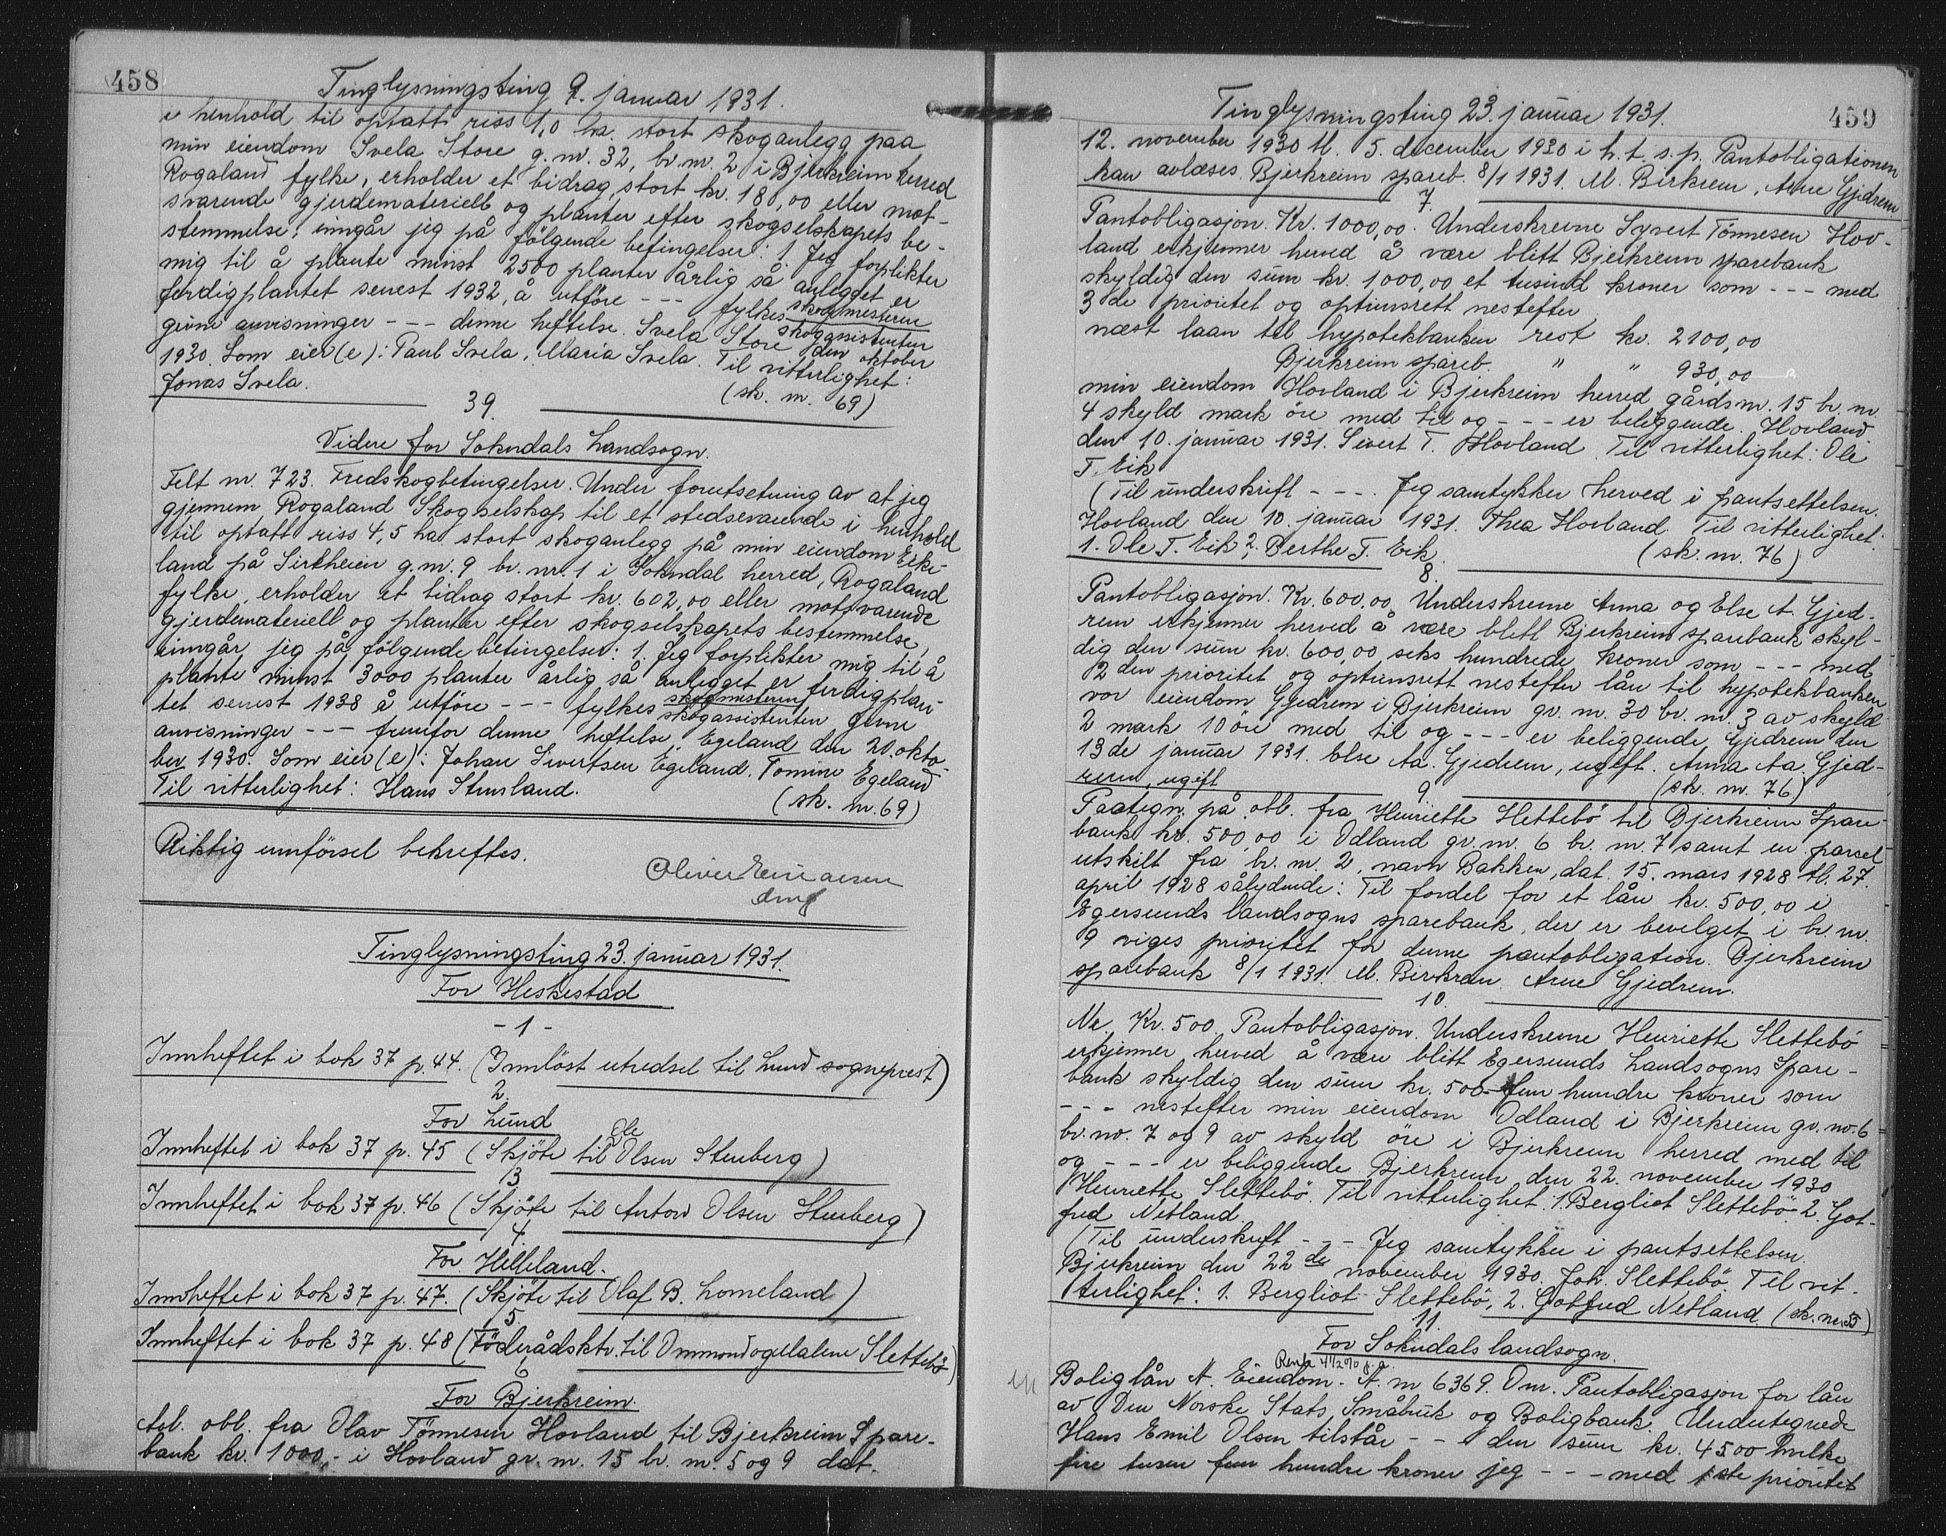 458
Tinglysningsting 9. januar 1931.
i henhold til optatt riss 1,0 ha. stort skoganlegg paa
min eiendom Svela Store g. nr. 32, br. nr. 2 i Bjerkreim herred
Rogaland fylke, erholder et bidrag, stort kr. 180,00 eller mot-
svarende gjerdemateriell og planter efter skogselskapets be-
stemmelse, inngår jeg på følgende betingelser: 1. Jeg forplikter
mig til å plante minst 2500 planter årlig så anlegget er
ferdigplantet senest 1932, å utføre - - - fylkes skogmesteren
skogassistenten
givne anvisninger - - - denne heftelse. Svela Store den oktober
1930. Som eier(e): Paul Svela, Maria Svela. Til vitterlighet:
Jonas Svela. (sk. nr. 69)
39.
Videre for Sokndals Landsogn.
Felt nr. 723. Fredskogbetingelser. Under forutsetning av at jeg
gjennem Rogaland Skogselskap til et stedsevarende i henhold
til optatt riss 4,5 ha. stort skoganlegg på min eiendom Eike-
land på Sirtheien g. nr. 9 br. nr. 1 i Sokndal herred, Rogaland
fylke, erholder et bidrag stort kr. 602,00 eller motsvarende
gjerdemateriell og planter efter skogselskapets bestemmelse,
inngår jeg på følgende betingelser: 1. Jeg forplikter mig til å
plante minst 3000 planter årlig så anlegget er ferdigplan-
tet senest 1938 å utføre - - - fylkes skogmesteren
skogassistenten givne
anvisninger - - - fremfor denne heftelse. Egeland den 20. okto-
ber 1930. Som eier(e): Johan Sivertsen Egeland. Tomine Egeland
Til vitterlighet: Hans Stensland. (sk. nr. 69)
Riktig innførsel bekreftes.
Oliver Einarsen
Tinglysningsting 23. januar 1931.
For Heskestad
- 1 -
Innheftet i bok 37 p. 44. (Innløst utredsel til Lund sogneprest)
2.
For Lund
Innheftet i bok 37 p. 45 (Skjøte til Ole Olsen Stenberg)
3
Innheftet i bok 37 p. 46 (Skjøte til Anton Olsen Stenberg)
4.
For Helleland.
Innheftet i bok 37 p. 47. (Skjøte til Olaf B. Lomeland)
5.
Innheftet i bok 37 p. 48 (Føderådsktr. til Ommund og Malene Slettebø)
6
For Bjerkreim.
Avl. obl. fra Olav Tønnesen Hovland til Bjerkreim Spare-
bank kr. 1000,- i Hovland gr. nr. 15 br. nr. 5 og 9 dat.
459
Tinglysningsting 23. januar 1931.
12. november 1930 tl. 5. december 1930 i h. t. s. p. Pantobligationen
kan avlæses. Bjerkreim spareb. 8/1 1931. M. Birkrem, Arne Gjedrem
7.
Pantobligasjon. Kr. 1000,00. Underskrevne Syvert Tønnesen Hov-
land erkjenner herved å være blitt Bjerkreim sparebank
skyldig den sum kr. 1000,00 et tusind kroner som - - - med
3de prioritet og optiunsrett nestefter
næst laan til hypotekbanken rest kr. 2100,00
Bjerkreim spareb. " " 930,00
min eiendom Hovland i Bjerkreim herred gårdsnr. 15 br. nr.
4 skyld mark øre med til og - - - er beliggende. Hovland
den 10. januar 1931. Sivert T. Hovland. Til vitterlighet: Ole
T. Eik
(Til underskrift - - - . Jeg samtykker herved i pantsettelsen.
Hovland den 10. januar 1931. Thea Hovland. Til vitterlighet:
1. Ole T. Eik 2. Berthe T. Eik. (sk. nr. 76)
8.
Pantobligasjon. Kr. 600,00. Underskrevne Anna og Else A. Gjed-
rem erkjenner herved å være blitt Bjerkreim sparebank skyl-
dig den sum kr. 600,00 seks hundrede kroner som - - - med
2den prioritet og optiunsrett nestefter lån til hypotekbanken
vor eiendom Gjedrem i Bjerkreim gr. nr. 30 br. nr. 3 av skyld
2 mark 10 øre med til og - - - er beliggende. Gjedrem den
13de januar 1931. Else Aa. Gjedrem, ugift. Anna Aa. Gjed-
rem, ugift (sk. nr. 76)
9.
Paategn. på obl. fra Henriette Slettebø til Bjerkreim Spare-
bank kr. 500,00 i Odland gr. nr. 6 br. nr. 7 samt en parsel
utskilt fra br. nr. 2, navn Bakken, dat. 15. mars 1928 tl. 27.
april 1928 sålydende: Til fordel for et lån kr. 500,00 i
Egersunds landsogns sparebank, der er bevilget i br. nr.
9 viges prioritet for denne pantobligation. Bjerkreim
sparebank 8/1 1931. M. Birkrem. Arne Gjedrem.
10.
Nr. Kr. 500. Pantobligasjon. Underskrevne Henriette Slettebø
erkjenner herved å være blitt Egersunds Landsogns Spare-
bank skyldig den sum kr. 500 - fem hundre kroner som
- - - nestefter min eiendom Odland i Bjerkreim gr. no. 6
br. no. 7 og 9 av skyld øre i Bjerkreim herred med til
og - - - er beliggende Bjerkreim den 22. november 1930
Henriette Slettebø. Til vitterlighet. 1. Bergliot Slettebø 2. Got-
fred Netland.
(Til underskrift - - - Jeg samtykker i pantsettelsen.
Bjerkreim den 22de november 1930. Joh. Slettebø. Til vit-
terlighet: 1. Bergliot Slettebø, 2. Gotfred Netland. (sk. nr. 53)
11.
For Sokndals landsogn.
Rente 4 1/2 % p. a.
Boliglån A. Eiendom. A. nr 6369. Om. Pantobligasjon for lån
av Den Norske Stats Småbruk og Boligbank. Undertegnede
Hans Emil Olsen tilstår - - - den sum kr. 4500 hvilke
fire tusen fem hundre kroner jeg - - - med 1ste prioritet